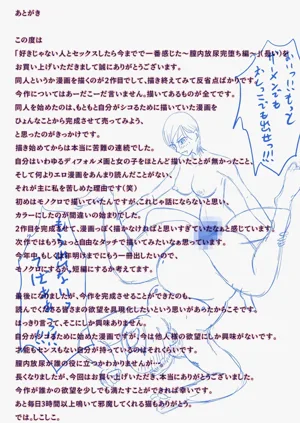 あとがき
この度は
「好きじゃない人とセックスしたら今までで一番感じた〜膣内放尿完堕ち編〜」(長い)を
お買い上げいただきまして誠にありがとうございます。
同人というか漫画を描くのが2作目でして、描き終えてみて反省点ばかりです。
今作についてはあーだこーだ言いません。描いてあるものが全てです。
同人を始めたのは、もともと自分がシコるために描いていた漫画を
ひょんなことから完成させて売ってみよう、
と思ったのがきっかけです。
描き始めてからは本当に苦難の連続でした。
自分はいわゆるディフォルメ画と女の子をほとんど描いたことが無かったこと、
そして何よりエロ漫画をあんまり読んだことがない、
それが主に私を苦しめた理由です（笑）
初めはモノクロで描いていたんですが、これじゃ話にならないと思い、
カラーにしたのが間違いの始まりでした。
2作目を完成させて、漫画っぽく描かなければと思いすぎていたなぁと感じています。
次作ではもうちょっと自由なタッチで描いてみたいなぁ思っています。
今年中、もしくは年明けまでにもう一冊出したいので、
モノクロにするか、短編にするか考えてます。
最後になりましたが、今作を完成させることができたのも、
読んでくださる皆さまの欲望を具現化したいという思いがあったからこそです。
はっきり言って、そこにしか興味ありません。
自分がシコるために始めた漫画ですが、今は他人様の欲望にしか興味がないです。
才能もセンスもない自分が持っているのはそれくらいです。
膣内放尿が誰の役に立つかわかりませんが…
長くなりましたが、今回はお買い上げいただき、本当にありがとうございました。
今作が誰かの欲望を少しでも満たすことができれば幸いです。
あと毎日3時間以上鳴いて邪魔してくれる猫もありがとう。
では、しこしこ。
おいっ!!もっと
ザーメンでも
おしっこでも出せっ!!!